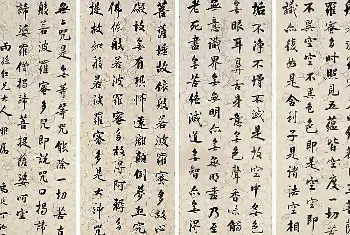 羅蜜多時照見五蘊皆空度一切苦
不異空空不異色色即是空空即
識亦復如是舍利子是諸法空相
垢不淨不增不減是故空中無色
無眼耳鼻舌身意無色聲香味觸
無意識界無無明亦無無明盡乃至
老死盡無苦集滅道無智亦無得
菩薩埵故依般若波羅蜜多故心
礙故無有恐怖遠離顛倒夢想究
佛依般若波羅蜜多故得阿耨多
提故知般若波羅蜜多是大神咒
無上咒是無等等咒能除一切苦真
般若波羅蜜多咒即說咒曰揭諦
諦波羅僧揭諦菩提薩婆訶
仁兄大人雅屬